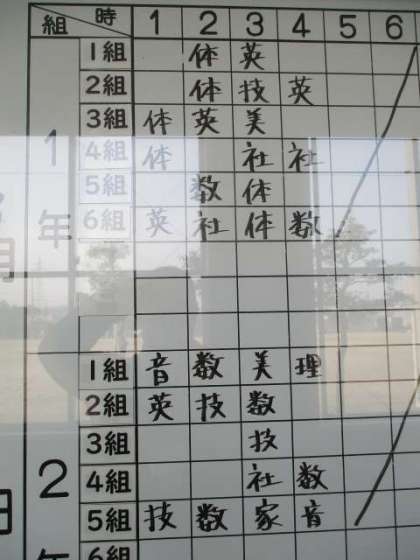 組 時 1 2 3 4 5 6
1年
1組 体 英
2組 体 技 英
3組 体 英 美
4組 体 社 社
5組 数 体
6組 英 社 体 数
2年
1組 音 数 美 理
2組 英 技 数
3組 技
4組 社 数
5組 技 数 家 音
6組